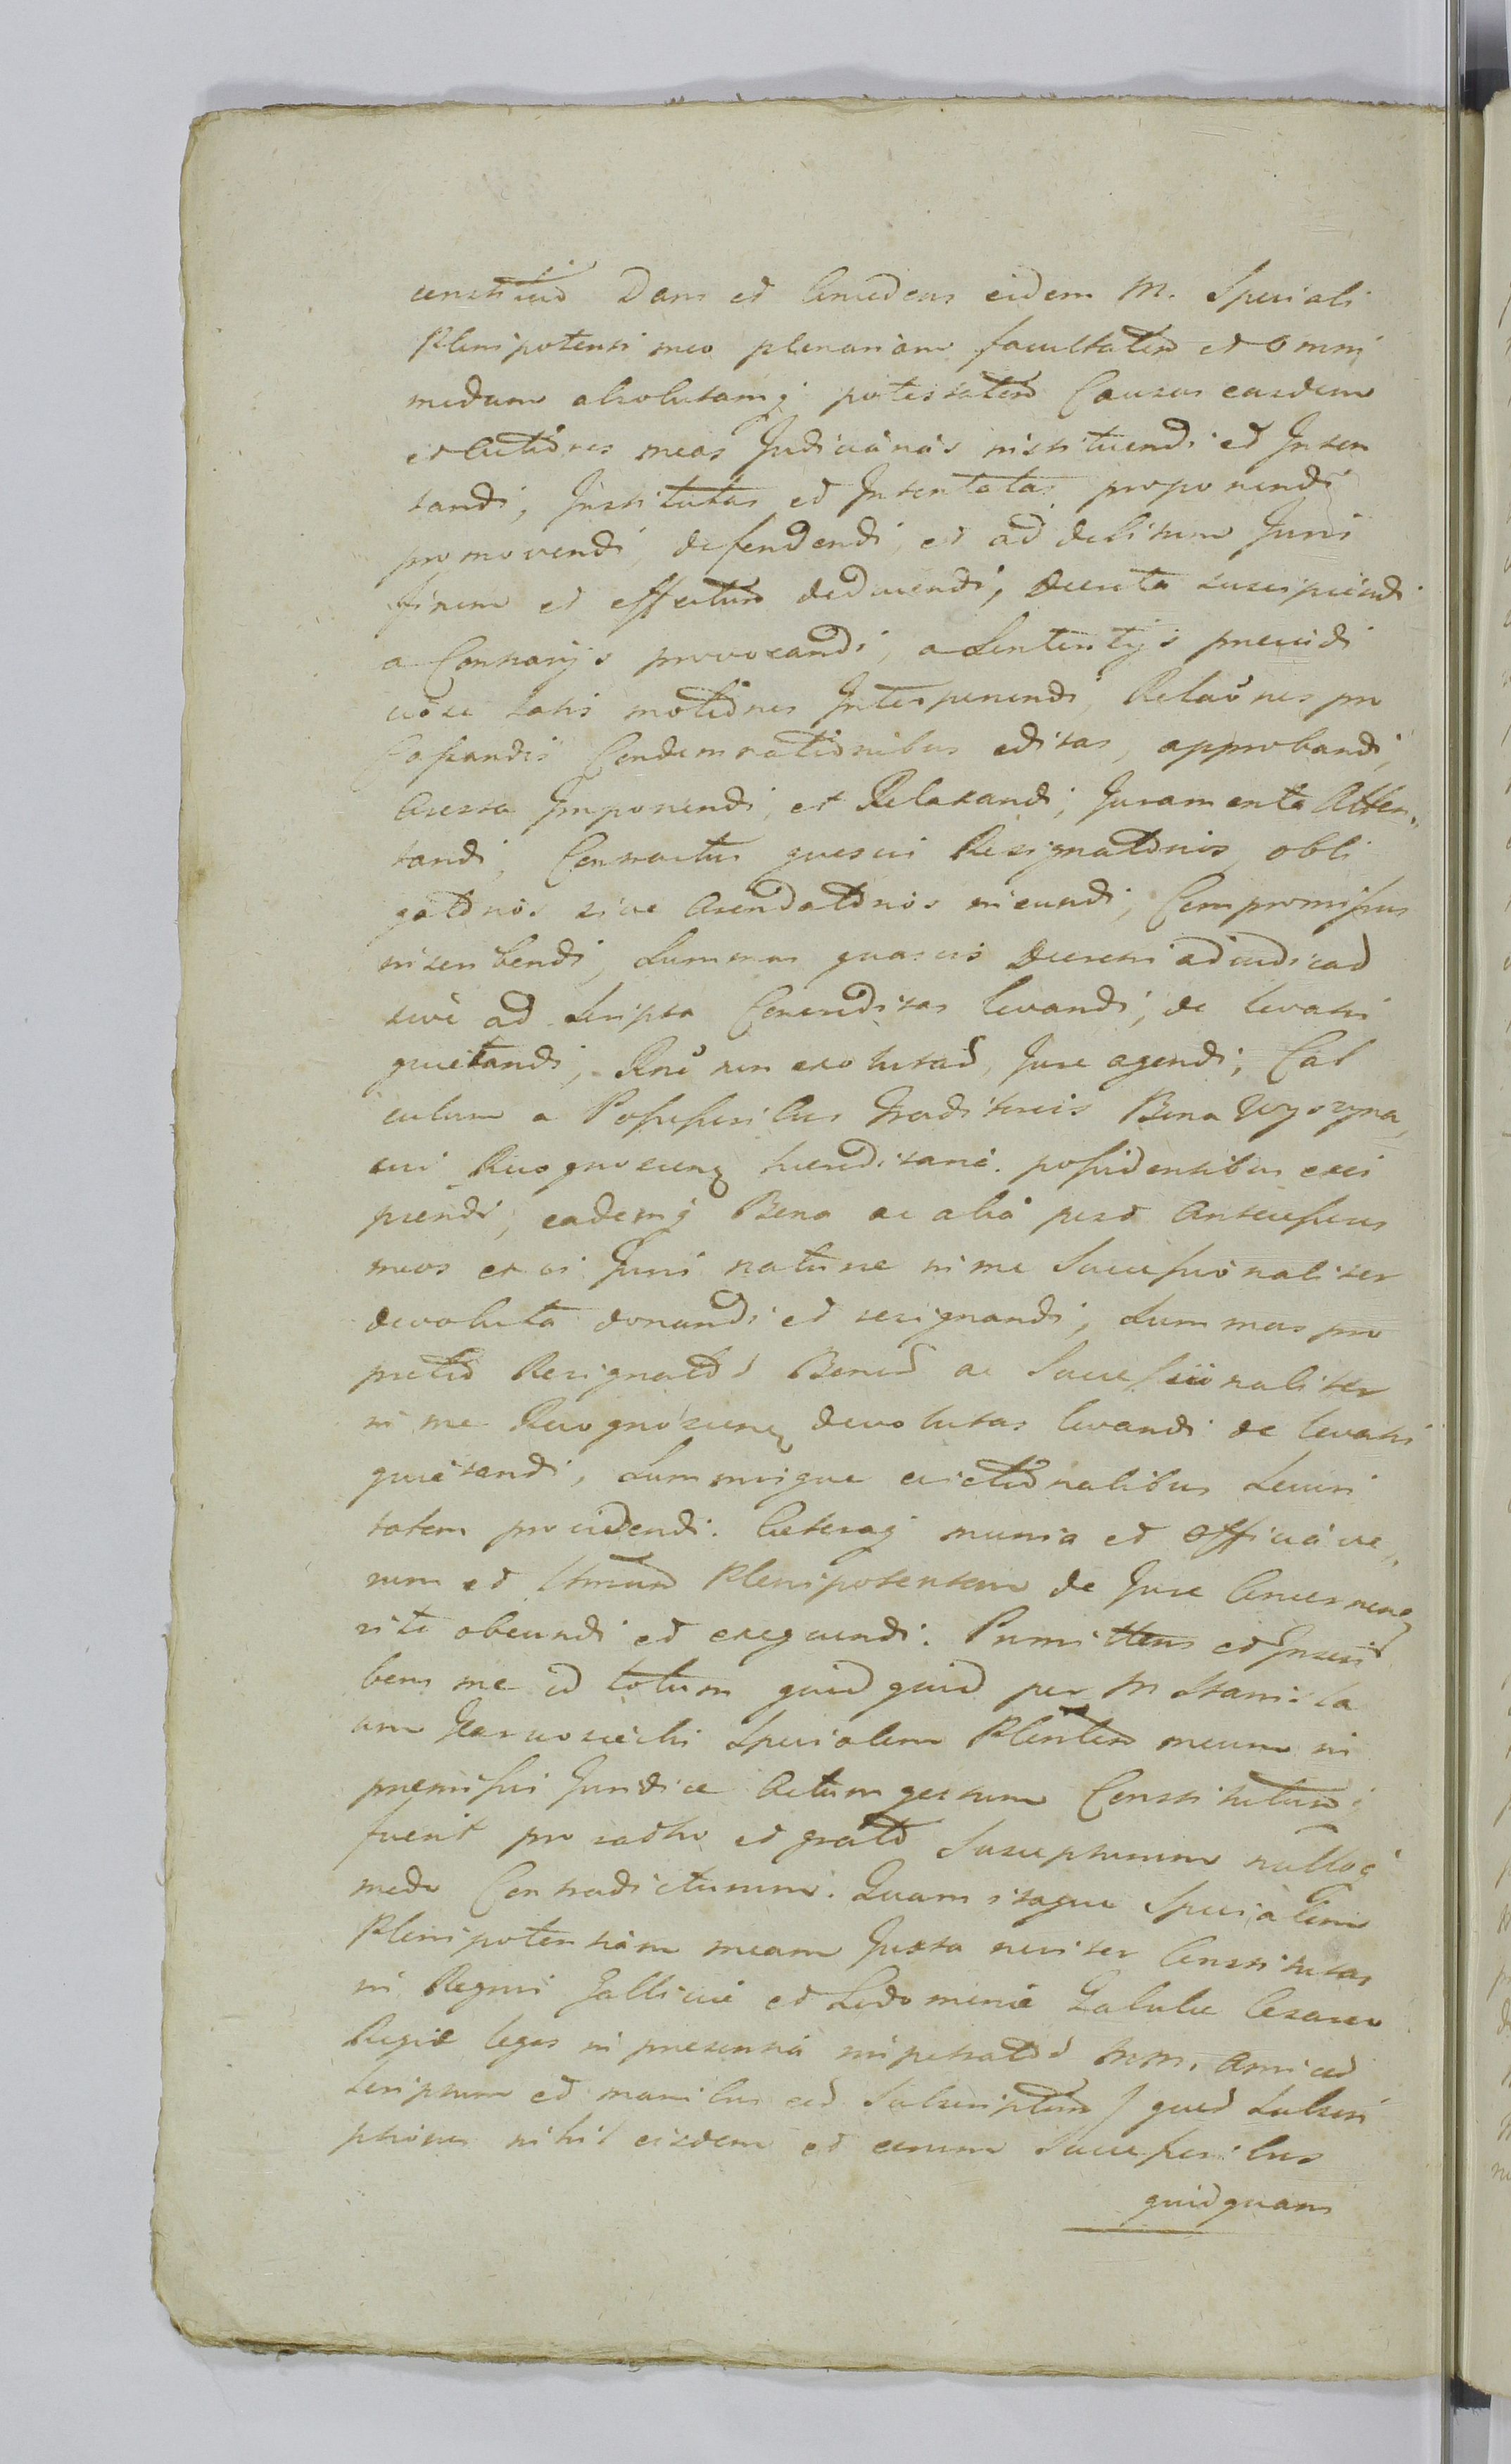 constituo Dans et Concedens eidem M. Speciali
Plenipotenti meo plenariam facultatem et omni
modam absolutamq potestatem Causas easdem
et Actiones meas Judiciarias instituendi et Inten
tandi, Institutas et Intentatas proponendi
promovendi, defendendi, et ad debitum Juris
finem et effectum deducendi, Decreta suscipiendi
a Contrarys provocandi, a Sententys
motiones Interponendi, Relaones pro
Condemnationibus editas, approbandi,
Aresta Imponendi, et Relaxandi, Juramenta Atten„
tandi, Contractus quosvis Resignationis, obli
gationis sive Arendationis ineundi, Compromissus
inscribendi, Summas quasvis Decreti adiudicat
sive ad Scripta Concreditas levandi, de levatis
quietandi, non exolutas, Jure agendi, Cal
culum a Possessoribus Traditoris Bona Wyszyna
sui Recognoscen possidentibus exci
piendi, eademq Bona ac alia post Antecessores
meos ex vi Juris nature in me Successionaliter
devoluta donandi et resignandi, Summas pro
pretio Resignator Bonor ac Successionaliter
in me Recognoscen devolutas levandi de levatis
quietandi, Summisque evictionalibus Securi
tatem providendi. Ceteraq munia et officia ve„
rum et Plenipotentem de Jure Concernen
rite obeundi et exequendi. Promittens et Inscri
bens me id totum quidquid per M Stanisla
um Specialem Plenten meum in
premissis Juridice Actum gestum Constitutum
fuerit pro ratho et grato Suscepturum nulloq
modo Contradicturum. Quam itaque Specialem
Plenipotentiam meam Juxta noviter Constitutas
in Regni Gallicie et Lodomerie Tabula Cesareo
Regie leges in presentia impetrator MM. Amicor
Scriptam et manibus eor Subscriptam / quod Subscri
ptiones nihil eisdem et eorum Successoribus
quidquam